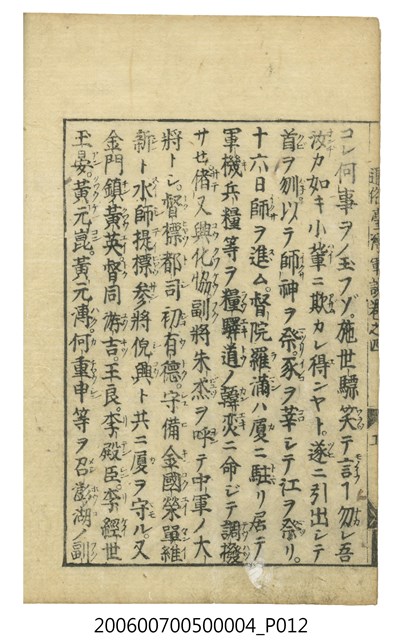 コレ何事ヲノ玉フゾ。施世驃笑テ言フ勿レ吾
汝カ如キ小輩ニ欺カレ得ンヤト。遂ニ引出シテ
首ヲ刎以テ師神ヲ祭。豕ヲ宰シテ江ヲ祭リ。
十六日師ヲ進ム。督院羅滿ハ厦ニ駐リ居テ
軍機兵糧等ヲ糧驛道ノ韓奕ニ命ジテ調撥
サセ偖又興化協副將朱杰ヲ呼テ中軍ノ大
將トシ。督標都司初有德。守備金國榮單維
新ト水師提標參將倪興ト共ニ厦ヲ守ル。又
金門鎮黃英。督同游吉。王良。李殿臣。李經世
王晏。黃元崑。黃元傳何重申等ヲ召澎湖ノ副
通俗臺灣軍談卷之四
200600700500004_P012